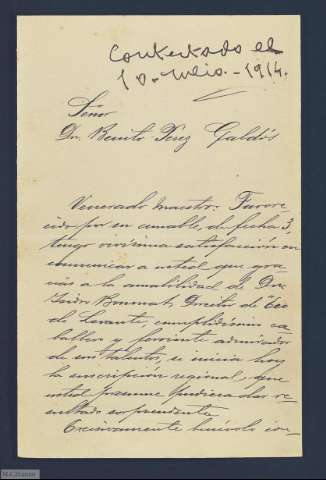 Contestado el
10-Julio.-1914.
Señor
Dn. Benito Perez Galdós
Venerado maestro: Favore-
cido por su amable, de fecha 3,
tengo vivísima satisfacción en
comunicar a usted que gra-
cias a la amabilidad de Dn.
Isidro Bonmatí, Director de "Eco
de Levante", cumplidísimo ca-
ballero y ferviente admirador
de sus talentos, se inicia hoy
la suscripción regional, que
usted presume pudiera dar re-
sultado sorprendente.
Excesivamente benévolo con-